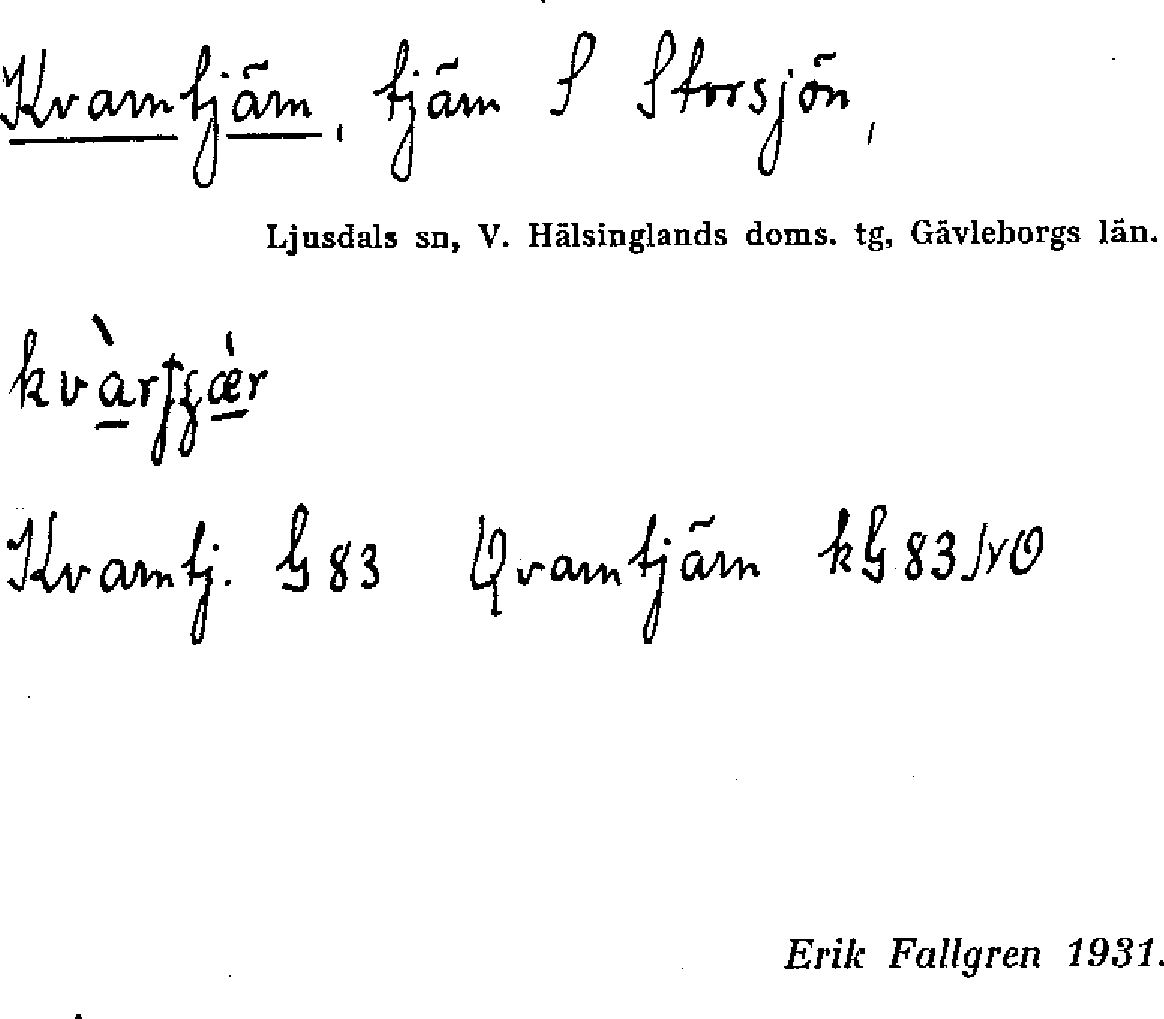 Kvarntjärn, tjärn S Storsjön,
Ljusdals sn, V. Hälsinglands doms. tg, Gävleborgs län.
Kvarntj. G 83 Qvarntjärn kG 83 NO
Erik Fallgren 1931.